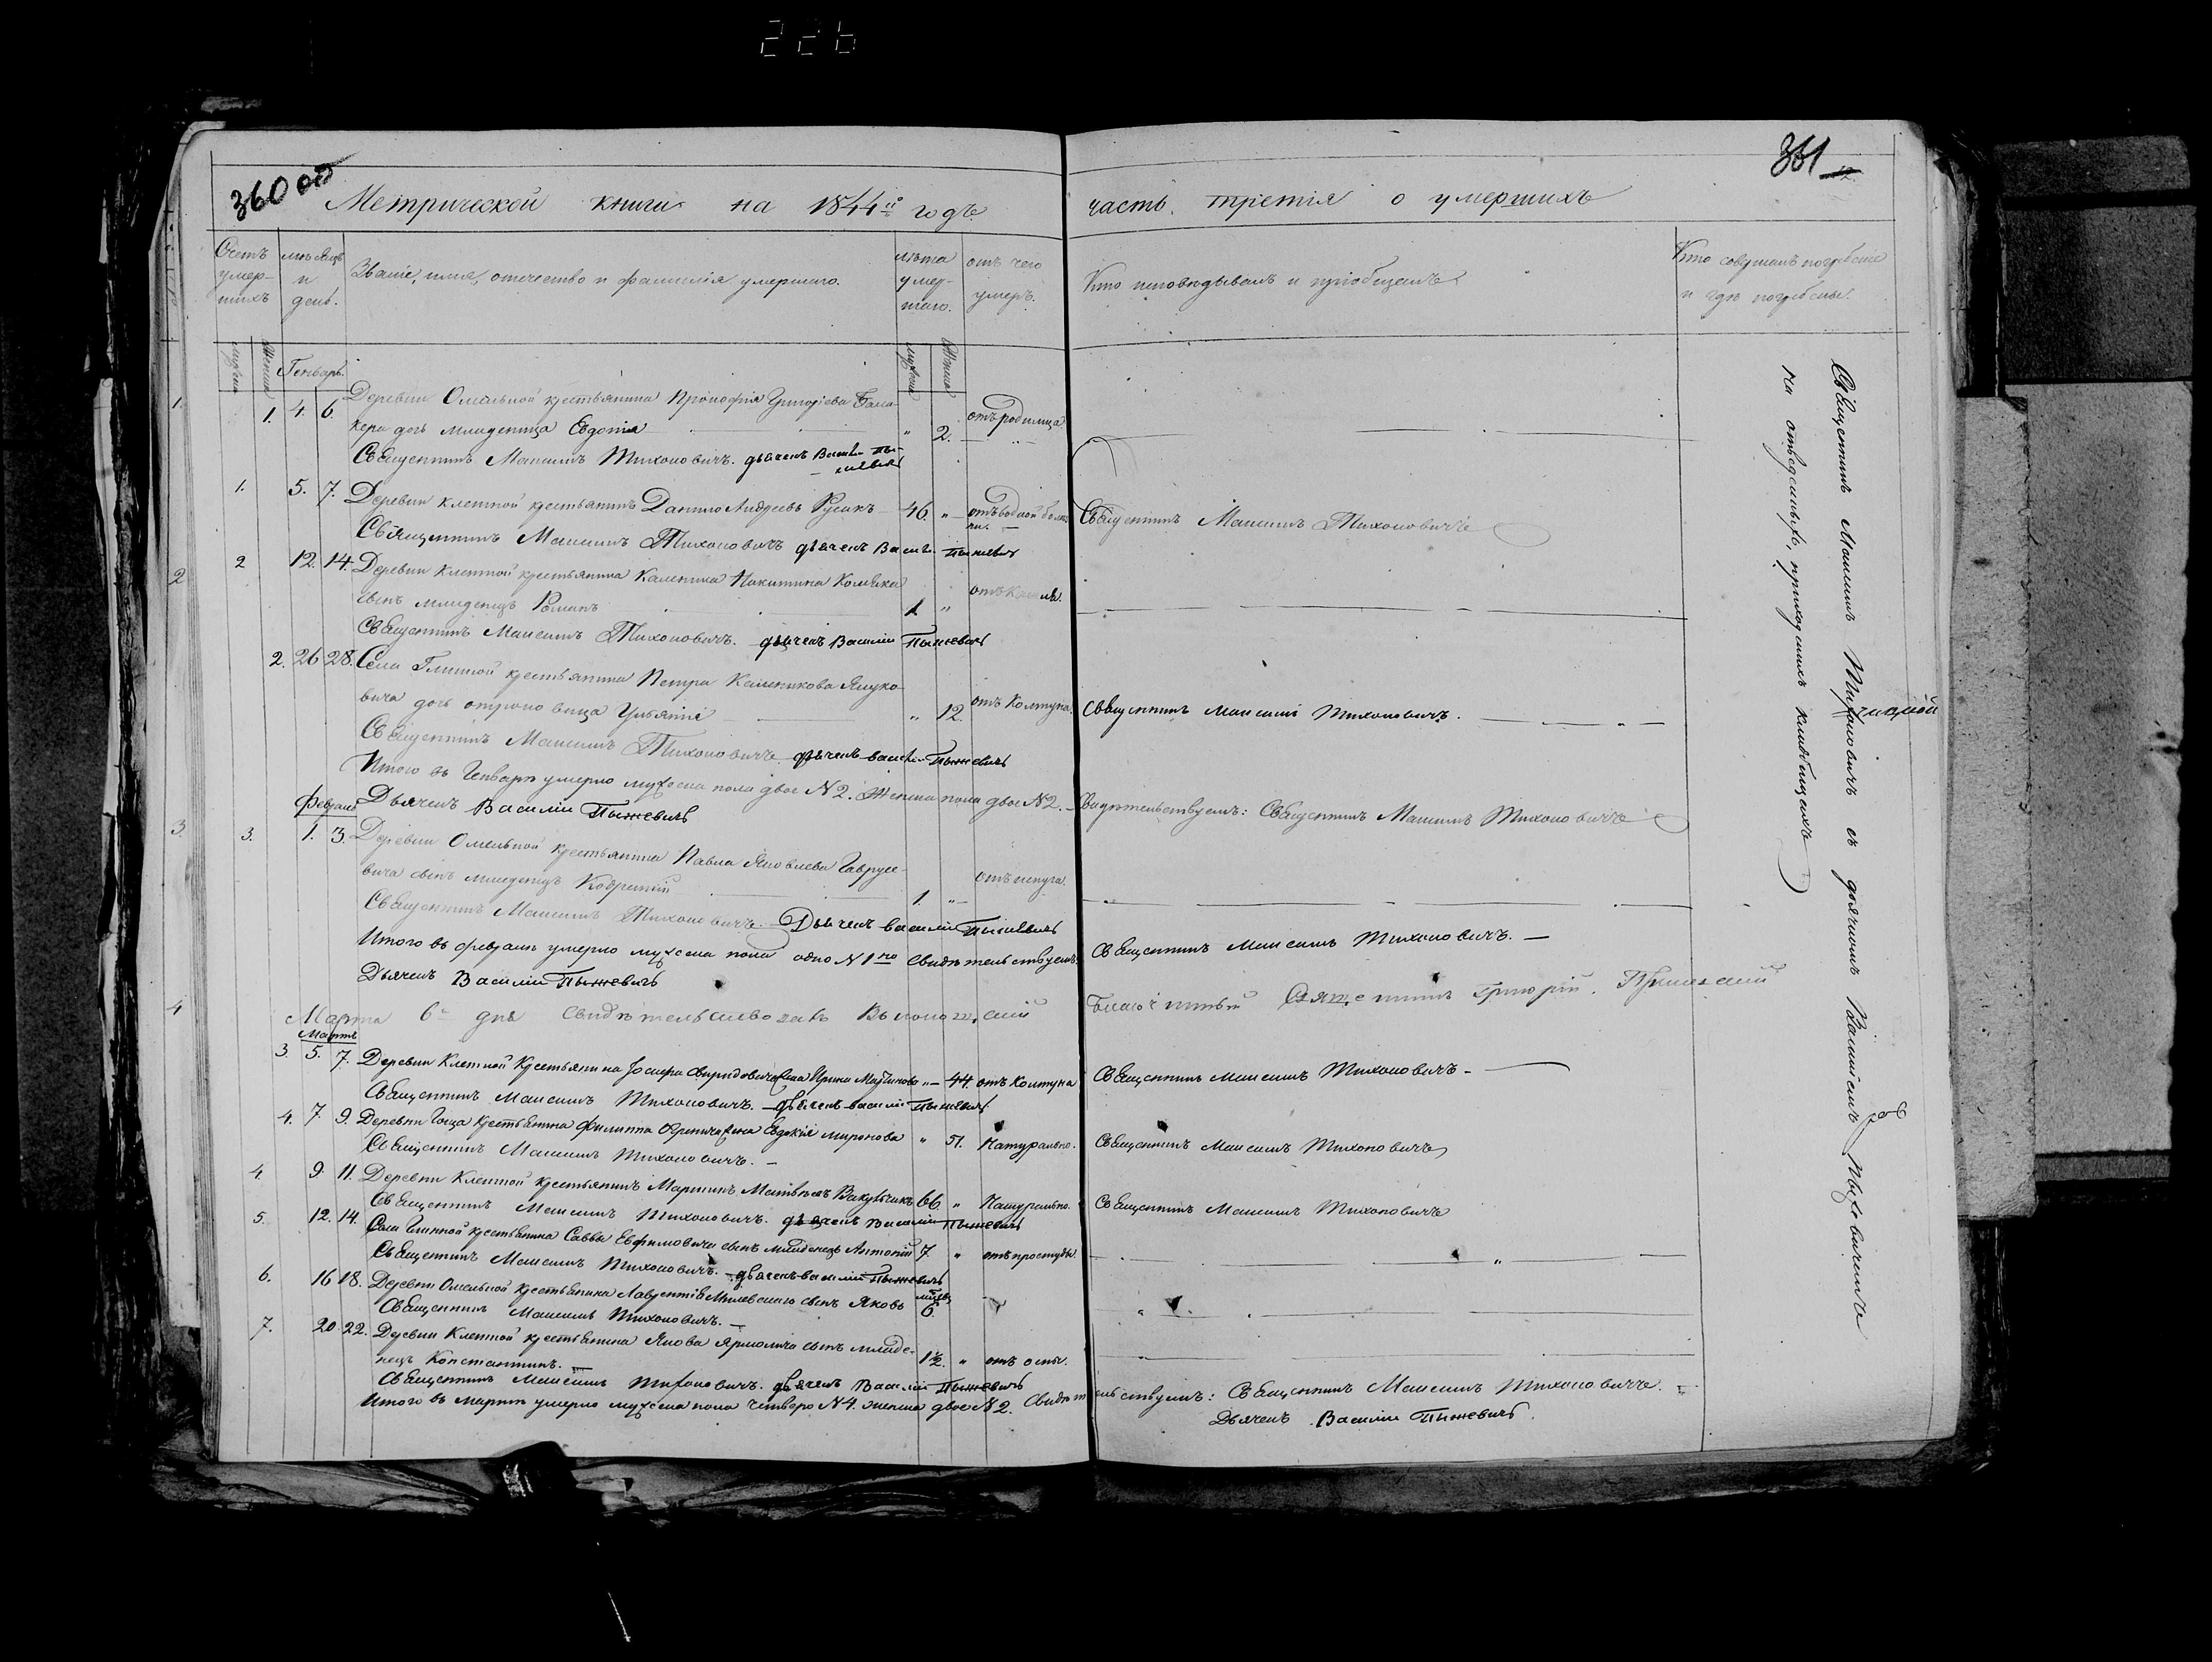 226
360 об
361
Метрической книги на 1844й годъ часть третія о умершихъ
Счетъ умер-шихъ
мѣсяцъ и день.
Званіе, имя, отечество и фамилія умершаго.
лѣта умер-шаго.
отъ чего умеръ.
Кто исповѣдывалъ и пріобщалъ
Кто совершалъ погребеніе и гдѣ погребены.
Генварь.
1. 4. 6. Деревни Омельной крестьянина Прокофія Григоріева
дочь младеница Евдокія " 2. отъ родимца
Священникъ Максимъ Тихоновичъ. дьячекъ Васил. Пыжевичъ
1. 5. 7. Деревни Клетной крестьянинъ Данило Андреевъ Русакъ 46. " отъ водной Священникъ Максимъ Тихоновичъ
Священникъ Максимъ Тихоновичъ дьячекъ Васил. Пыжевичъ
2 12. 14. Деревни Клетной крестьянина Каленика Никитина
сынъ младенецъ Романъ 1 " отъ
Священникъ Максимъ Тихоновичъ. дьячекъ Василій Пыжевичъ
2. 26 28. Села Глинной крестьянина Петра Каленикова Януко-
вича дочь отроковица Ульянія " 12. отъ Колтуна. Священникъ Максимъ Тихоновичъ.
Священникъ Максимъ Тихоновичъ. дьячекъ Васил. Пыжевичъ
Итого въ Генварѣ умерло мужеска пола двое N 2. Женска пола двое N 2. Свидѣтельствуемъ: Священникъ Максимъ Тихоновичъ
Дьячекъ Василій Пыжевичъ
Февраль
3. 1. 3. Деревни Омельной крестьянина Павла Яковлева Гаврусе-
вича сынъ младенецъ 1. " отъ испуга.
Священникъ Максимъ Тихоновичъ. Дьячекъ Василій Пыжевичъ
Итого въ февралѣ умерло мужеска пола одно N 1но Свидѣтельствуемъ: Священникъ Максимъ Тихоновичъ.
Дьячекъ Василій Пыжевичъ
Марта 6го дня свидѣтельствовалъ Благочинный Священникъ Григорій
Мартъ
3. 5. 7. Деревни Клетной Крестьянина Іосифа жена Ирина " 44. отъ Колтуна Священникъ Максимъ Тихоновичъ
Священникъ Максимъ Тихоновичъ. дьячекъ Василій Пыжевичъ
4. 7 9. Деревни Гоща Крестьянина Филиппа жена Евдокія Миронова " 51. Натурально. Священникъ Максимъ Тихоновичъ
Священникъ Максимъ Тихоновичъ.
4 9 11. Деревни Клетной крестьянинъ Мартинъ Матвѣевъ Вакульчикъ 66 " Натурально. Священникъ Максимъ Тихоновичъ
Священникъ Максимъ Тихоновичъ. дьячекъ Василій Пыжевичъ
5. 12. 14. Села Глинной крестьянина Саввы Ефимовича сынъ младенецъ Антоній 7. " отъ простуды.
Священникъ Максимъ Тихоновичъ. дьячекъ Василій Пыжевичъ
6. 16 18. Деревни Омельной крестьянина Лаврентія Милевскаго сынъ Яковъ 6.
Священникъ Максимъ Тихоновичъ.
7. 20. 22. Деревни Клетной крестьянина Якова Ярмолича сынъ младе-
нецъ Константинъ. 1½. " отъ оспы.
Священникъ Максимъ Тихоновичъ. дьячекъ Василій Пыжевичъ
Итого въ мартѣ умерло мужеска пола четверо N 4. женска двое N 2. Свидѣтельствуемъ: Священникъ Максимъ Тихоновичъ.
Дьячекъ Василій Пыжевичъ.
Священникъ Максимъ Тихоновичъ съ дьячкомъ Василіемъ Пыжевичемъ
на отведенныхъ приходскихъ кладбищахъ